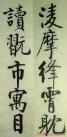 凌摩絳霄耽
讀翫市寓目